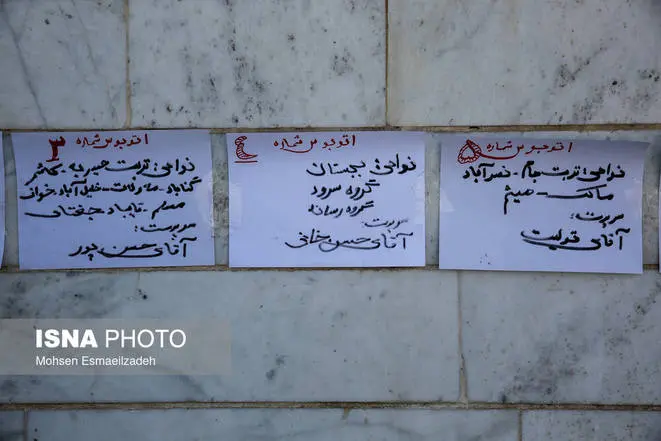 اتوبوس شماره ۵
نواحی: تربت جام - نصرآباد
سرپرست:
آقای قدرت
اتوبوس شماره ٤
نواحی: بجستان
گروه سرود
گروه رسانه
سرپرست:
آقای حسن خانی
اتوبوس شماره ۳
نواحی: تربت حیدریه - کاشمر
گناباد - خلیل آباد - خواف
تایباد جغتای
سرپرست:
آقای حسن پور
ISNA PHOTO
Mohsen Esmaeilzadeh